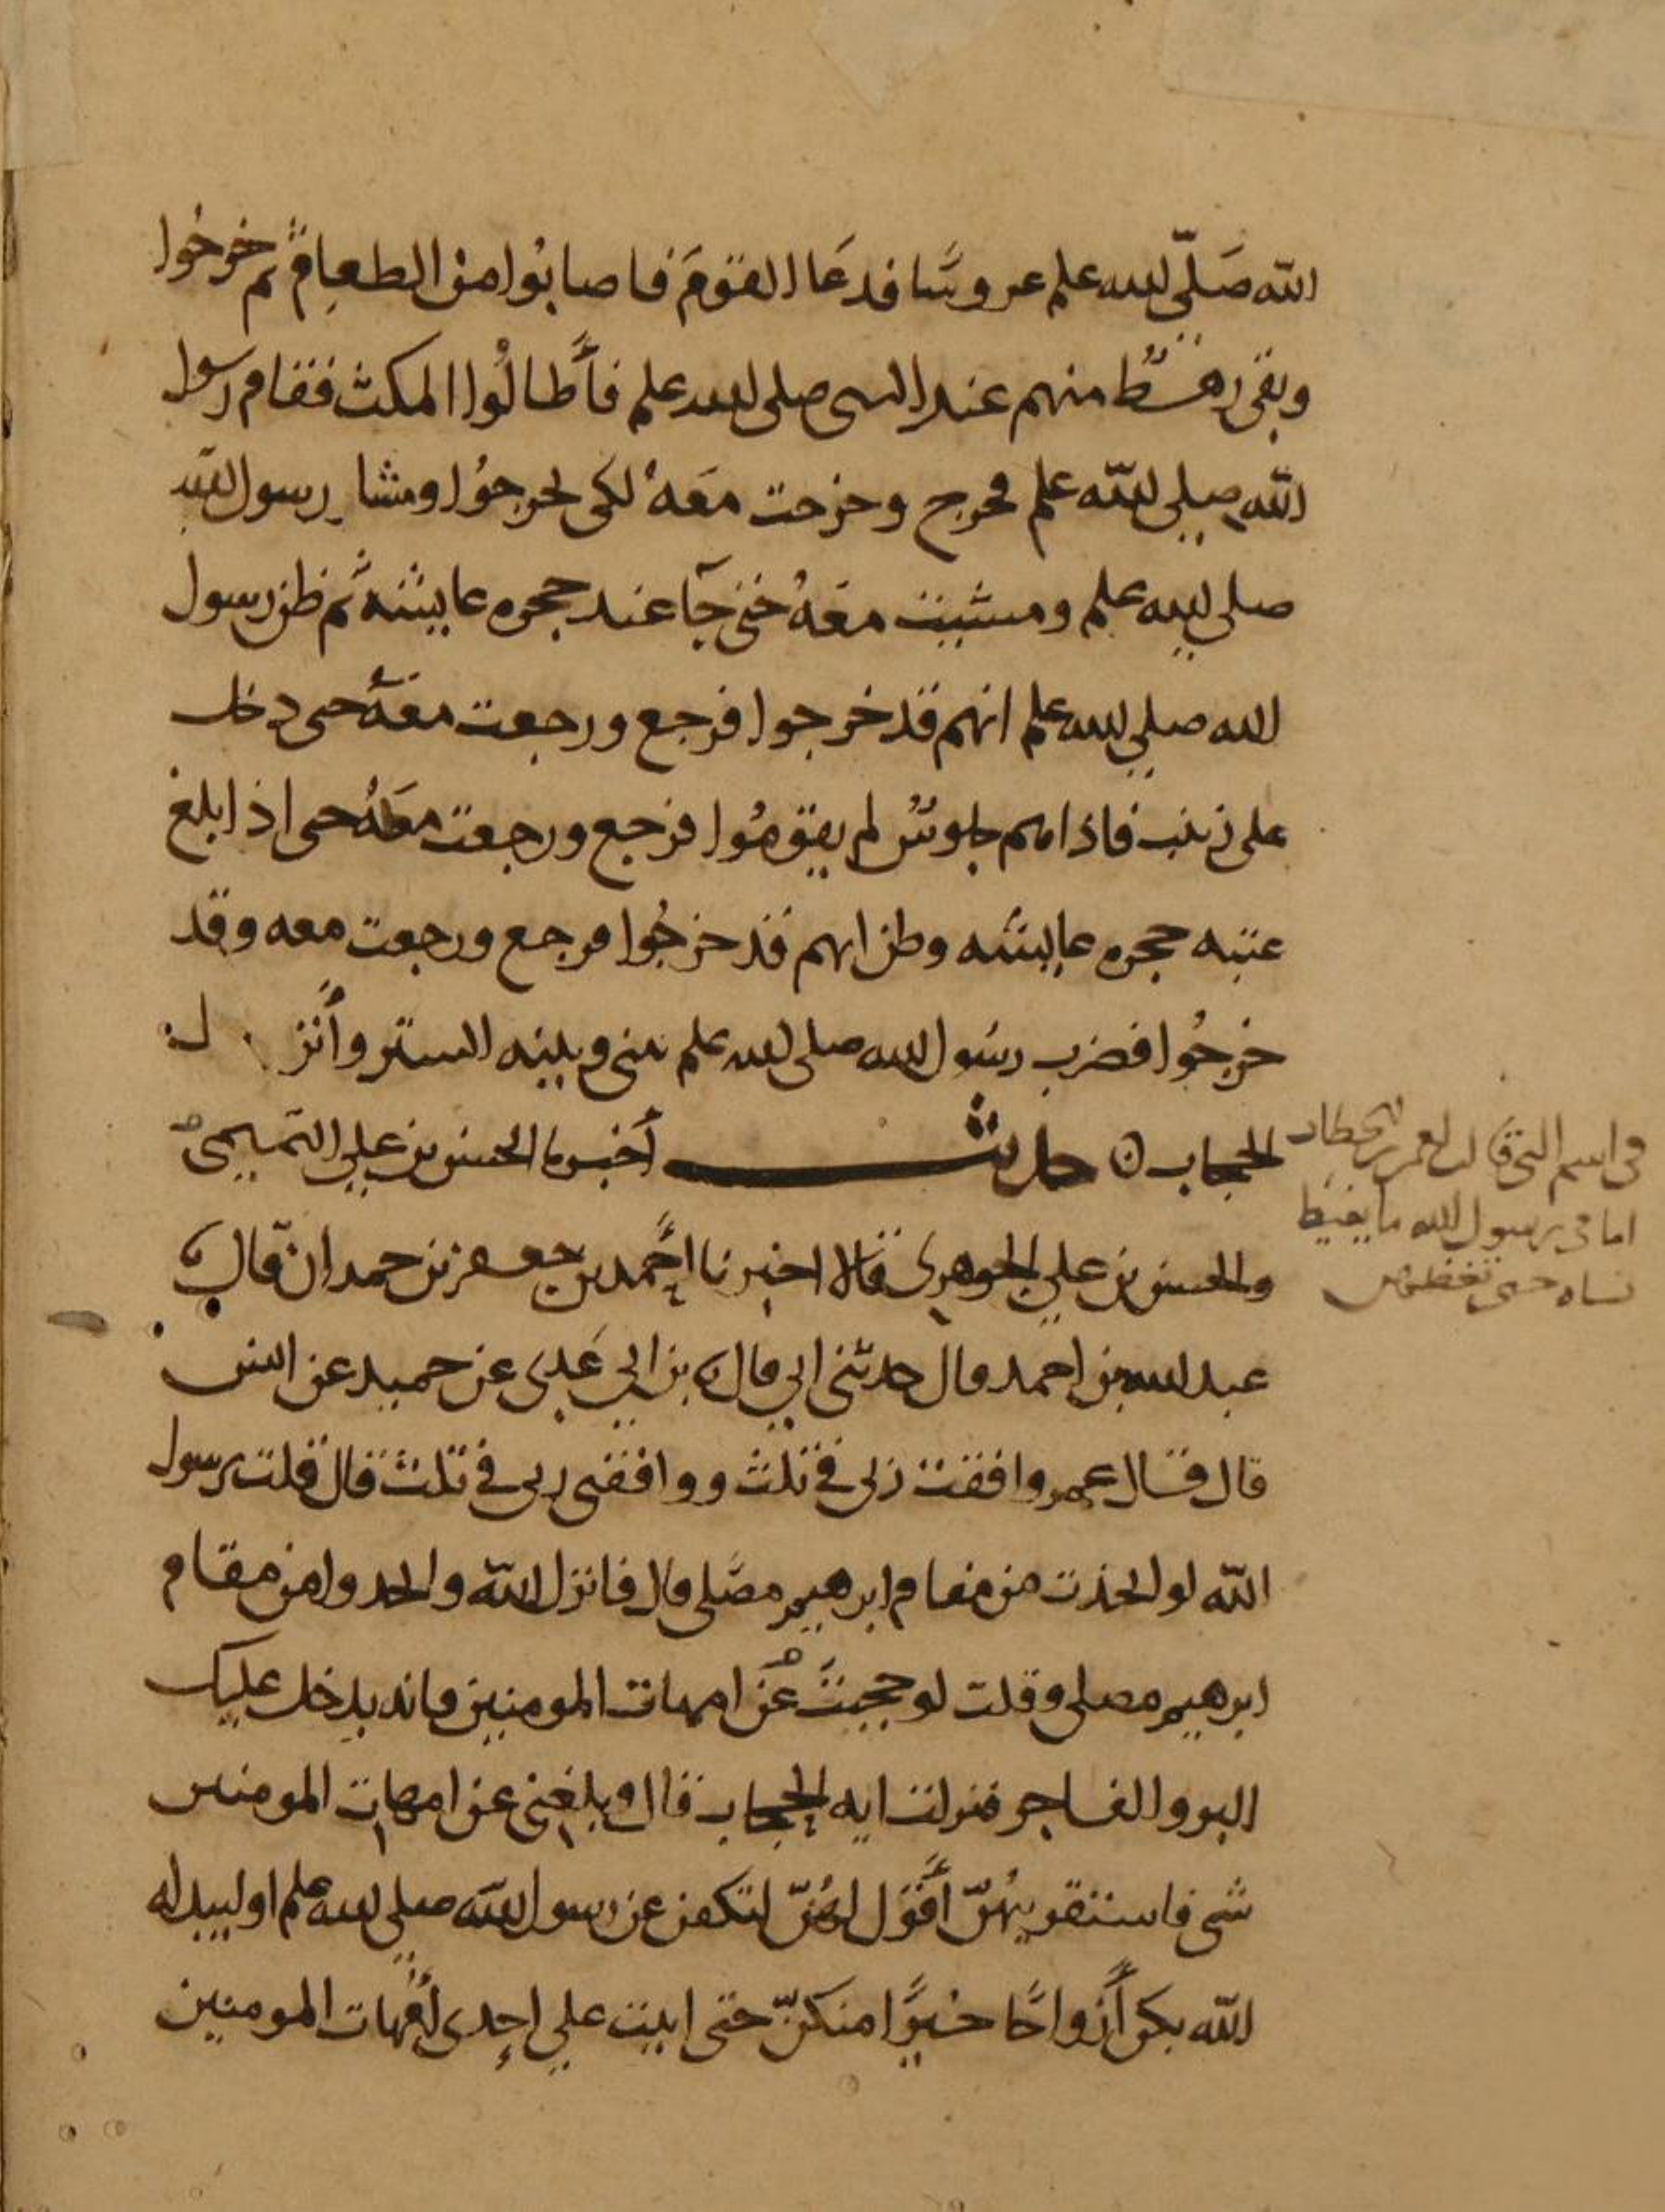 الله صَلّى الله علم عروسًا فدعَا القومَ فاصابُوا من الطعام ثم خرجُوا
وبقى رهطٌ منهم عند النبى صلى الله علم فأطالُوا المكث فقام رسول
الله صلى الله علم فخرج وخرجت معَهُ لكى يخرجُوا ومشا رسول الله
صلى الله علم ومشيت معَهُ حتى جآ عند حجره عايشه ثم ظن رسول
الله صلى الله علم انهم قد خرجوا فرجع ورجعت معَهُ حتى دخل
على زينب فاذا هم جلوسٌ لم يقومُوا فرجع ورجعت معَهُ حتى اذا بلغ
عتبه حجره عايشه وظن انهم قد خرجُوا فرجع ورجعت معه وقد
خرجُوا فضرب رسُول الله صلى الله علم بينى وبينه الستر وأنزل
الحجاب ن حديث أخبرنا الحسن بن على التميمى
والحسن بن على الجوهرى قالا اخبرنا أحمد بن جعفر بن حمدان قال نا
عبد الله بن احمد قال حدثنى ابى قال نا بن ابى عَدى عن حميد عن انس
قال قال عمر وافقت ربى فى ثلث ووافقنى ربى فى ثلث قال قلت يرسول
الله لو اتخذت من مقام ابرهيم مصَلى قال فانزل الله واتخذوا من مقام
ابرهيم مصلى وقلت لو حجبتَ عَن امهات المومنين فانه يدخل عليك
البر والفاجر فنزلت ايه الحجاب قال وبلغنى عن امهات المومنين
شى فاستقريهُنّ أقول لهُنّ لتكفن عن رسول الله صلى الله علم او ليبدله
الله بكن أزواجًا خيرًا منكنّ حتى اتيت على احدى أمّهات المومنين
فى اسم التى قالت لعمر بن الخطاب
اما فى رسول الله ما يعظ
نساه حتى تعظهن